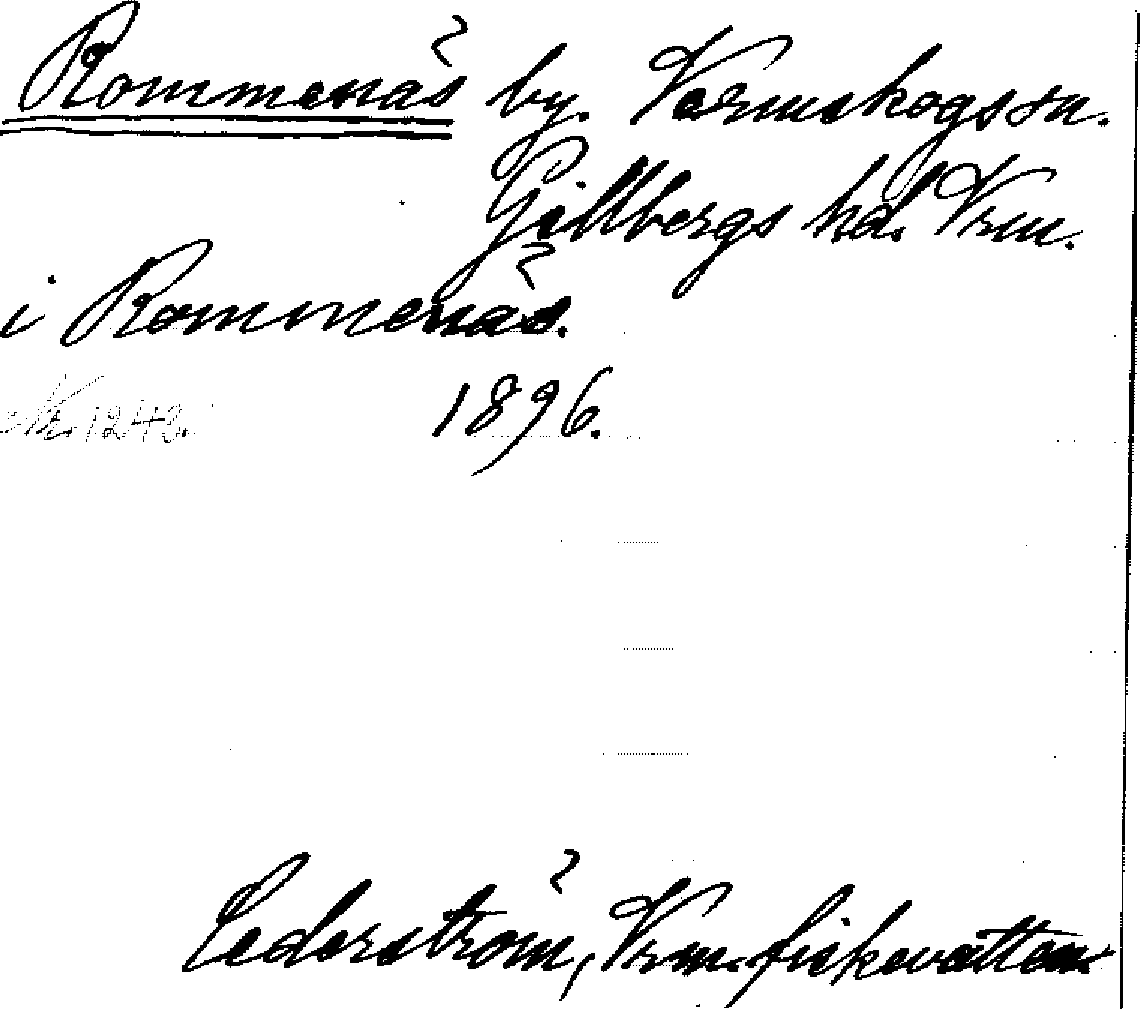 Rommenäs by. Värmskogs sn.
Gillbergs hd. Vrm.
i Rommenäs.
1896.
Cederström, Vrm. fiskevatten